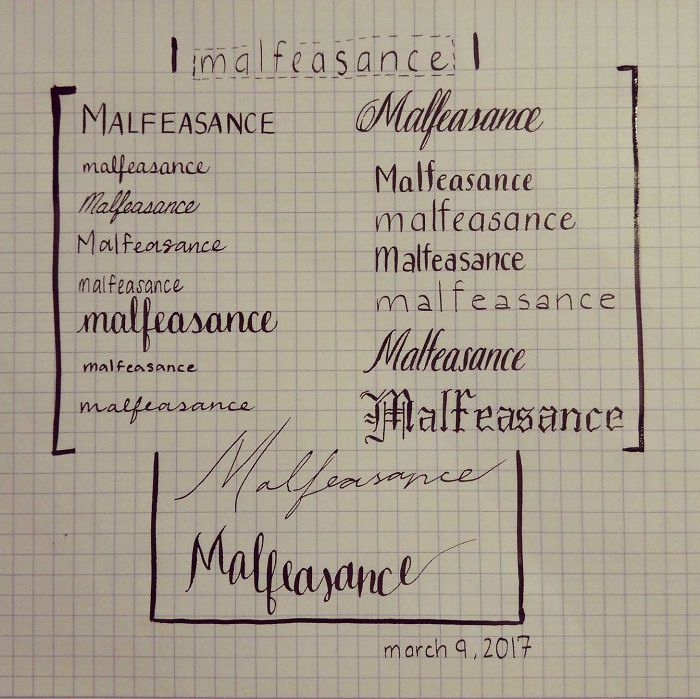 malfeasance
MALFEASANCE
malfeasance
Malfeasance
Malfeasance
malfeasance
malfeasance
malfeasance
malfeasance
Malfeasance
Malfeasance
malfeasance
Malfeasance
malfeasance
Malfeasance
Malfeasance
Malfeasance
Malfeasance
march 9, 2017